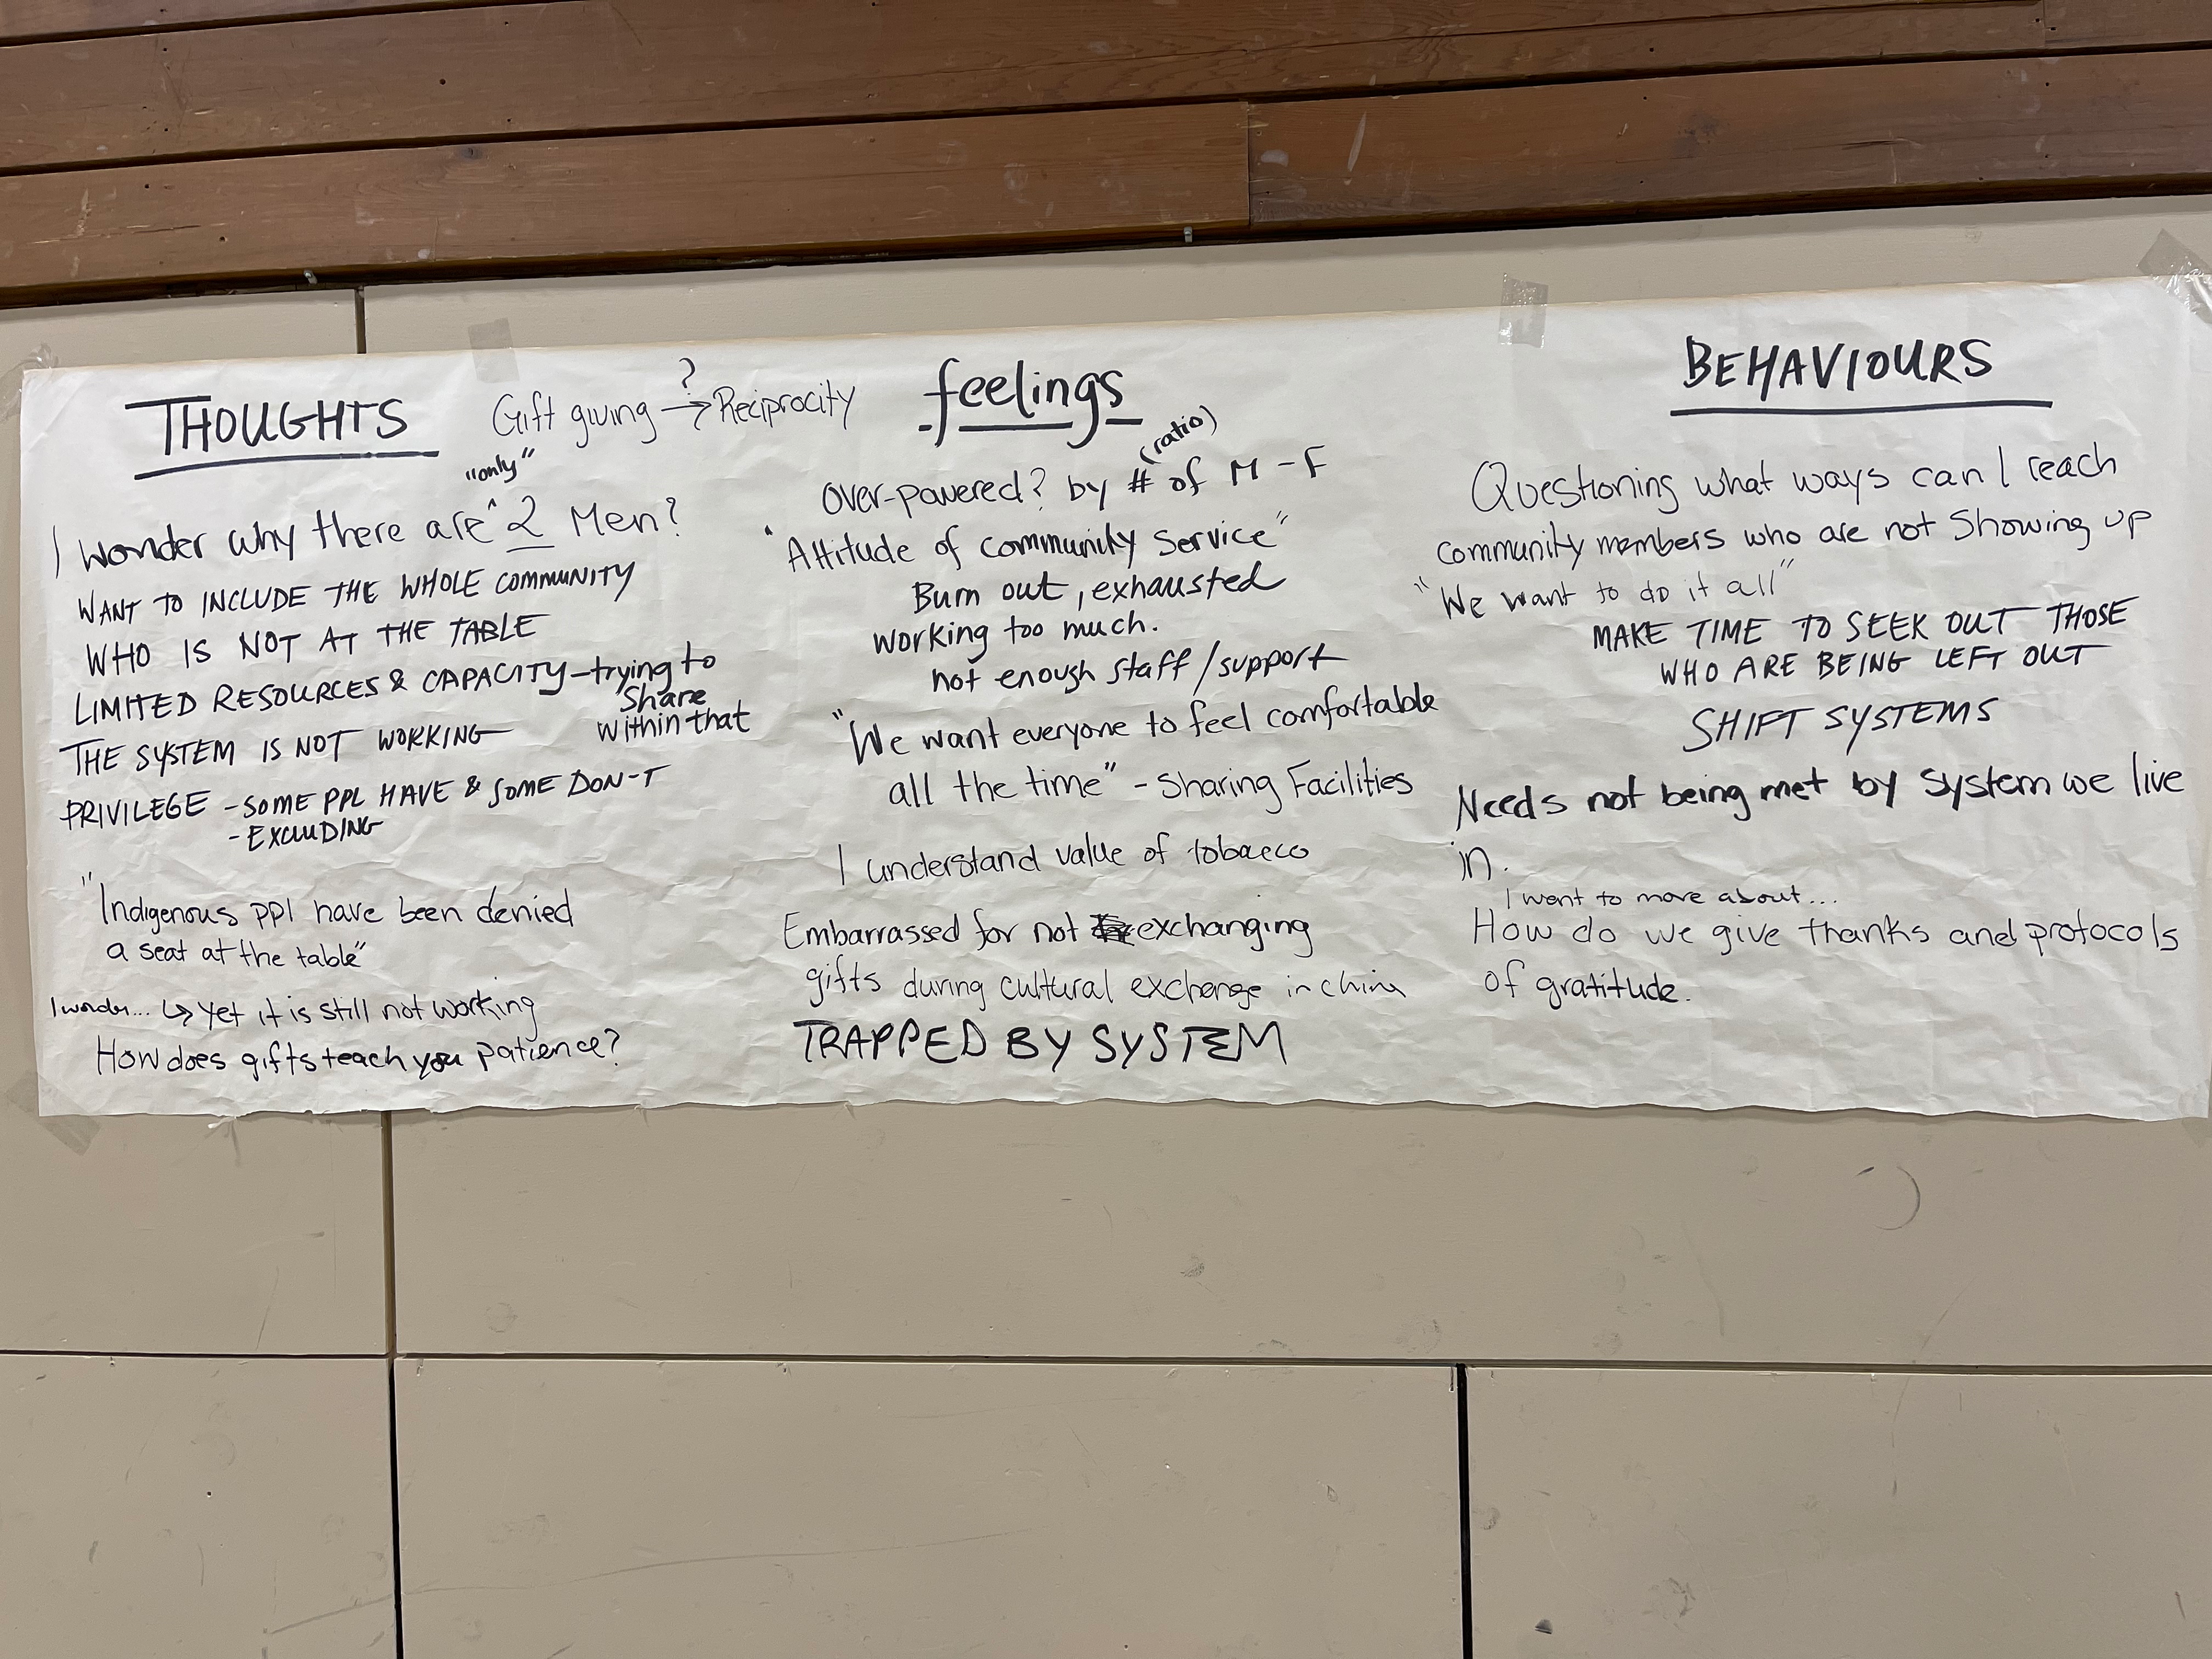 THOUGHTS
Gift giving → Reciprocity
?
"only"
I wonder why there are ^ 2 Men?
WANT TO INCLUDE THE WHOLE COMMUNITY
WHO IS NOT AT THE TABLE
LIMITED RESOURCES & CAPACITY - trying to
share
within that
THE SYSTEM IS NOT WORKING
PRIVILEGE - SOME PPL HAVE & SOME DON-T
- EXCLUDING
"Indigenous ppl have been denied
a seat at the table"
I wonder... ↳ yet it is still not working
How does gifts teach you patience?
feelings
(ratio)
Over-powered? by # of M - F
"Attitude of community service"
Burn out, exhausted
working too much.
not enough staff/support
"We want everyone to feel comfortable
all the time" - Sharing Facilities
I understand value of tobacco
Embarrassed for not exchanging
gifts during cultural exchange in china
TRAPPED BY SYSTEM
BEHAVIOURS
Questioning what ways can I reach
community members who are not showing up
"We want to do it all"
MAKE TIME TO SEEK OUT THOSE
WHO ARE BEING LEFT OUT
SHIFT SYSTEMS
Needs not being met by system we live
in.
I want to more about...
How do we give thanks and protocols
of gratitude.